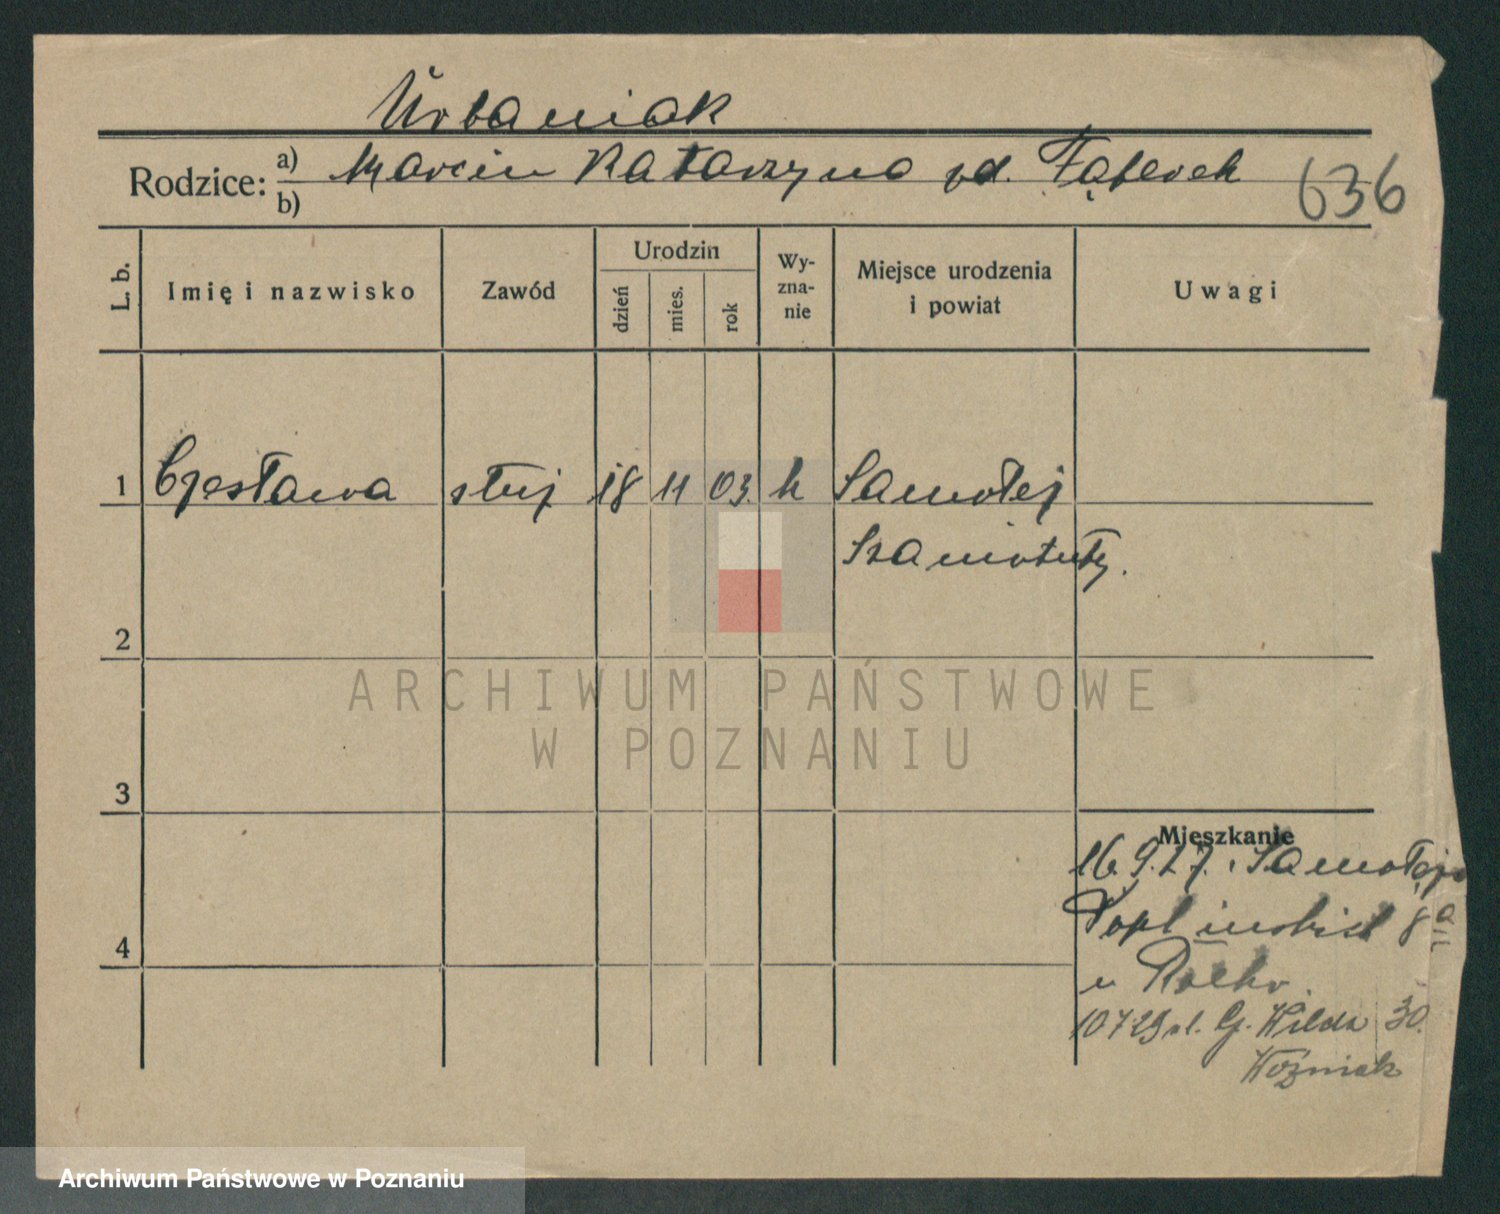 Urbaniak
Rodzice: a) Marcin Katarzyna zd.
b)
636
L. b.
Imię i nazwisko
Zawód
Urodzin
dzień
mies.
rok
Wy-
zna-
nie
Miejsce urodzenia
i powiat
Uwagi
1 Czesława służ 18 11 03. k Samołęż
Szamotuły.
2
ARCHIWUM PAŃSTWOWE
W POZNANIU
3
Mieszkanie
16.9.27.
8a
u
4
G. Wilda 30.
Woźniak
Archiwum Państwowe w Poznaniu